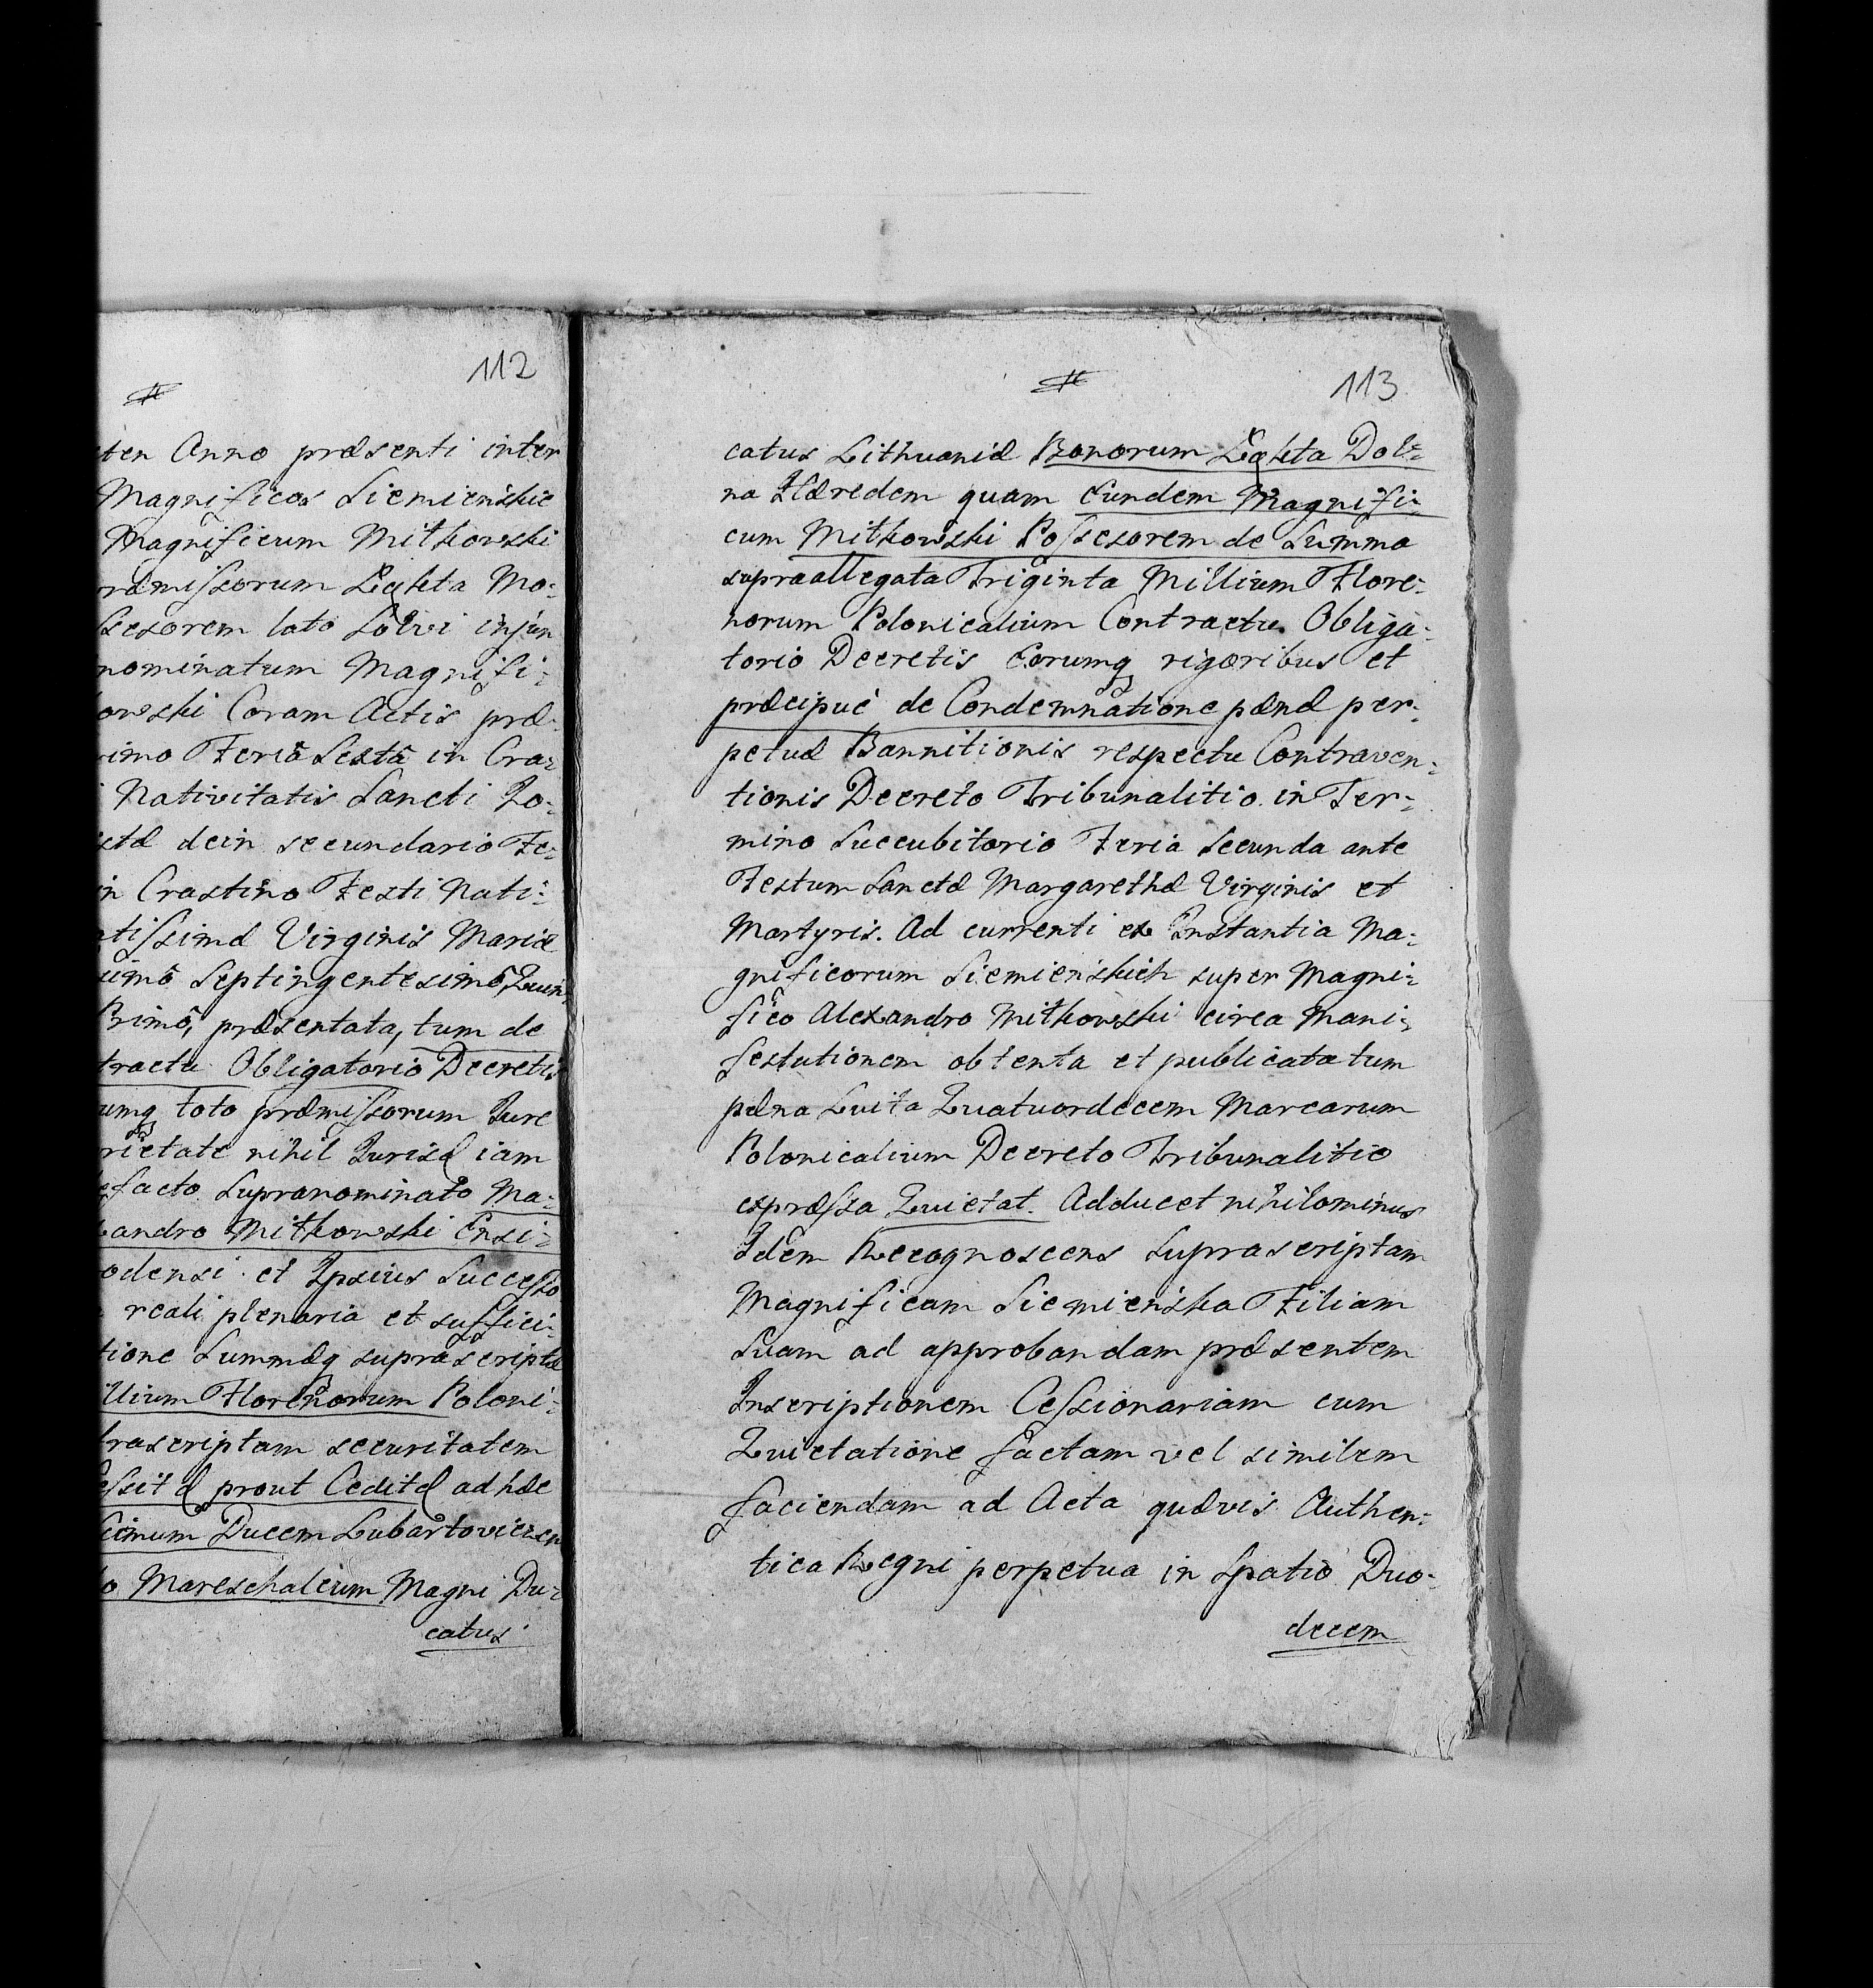 112
ten Anno præsenti inter
Magnificos Siemieńskie
Magnificum Mitkowski
ræmissorum Łąkta Mo-
sesorem lato Solvi injun
nominatum Magnifi-
owski Coram Actis præ-
rimo Feriâ Sextâ in Cra-
Nativitatis Sancti Jo-
dein secundario Fe-
in Crastino Festi Nati-
tissimæ Virginis Mariæ
simô Septingentesimô, Quin
Primô, præsentata, tum de
tractu Obligatorio Decretis
umq toto præmissorum Jure
rietate nihil Jurisq iam
efacto Supranominato Ma-
andro Mitkowski Ensi-
odensi et Ipsius Successo
reali plenaria et suffici-
tione Summæq suprascriptæ
llium Florenorum Poloni-
frascriptam securitatem
essit q prout Ceditq adhæc
simum Ducem Lubartoviczen
o Mareschalcum Magni Du-
catus
113
catus Lithuaniæ Bonorum Łąkta Dol-
na Hæredem quam Eundem Magnifi-
cum Mitkowski Possesorem de Summa
supraallegata Triginta Millium Flore-
norum Polonicalium Contractu Obliga-
torio Decretis Eorumq rigoribus et
præcipuè de Condemnatione pænæ per-
petuæ Bannitionis respectu Contraven-
tionis Decreto Tribunalitio in Ter-
mino Succubitorio Feria Secunda ante
Festum Sanctæ Margarethæ Virginis et
Martyris. Ad currenti ex Instantia Ma-
gnificorum Siemienskich super Magni-
fico Alexandro Mitkowski circa Mani-
festationem obtenta et publicata tum
pæna Luita Quatuordecem Marcarum
Polonicalium Decreto Tribunalitio
expræssa Quietat. Adducet nihilominus
Idem Recognoscens Suprascriptam
Magnificam Siemieńska Filiam
Suam ad approbandam præsentem
Inscriptionem Cessionariam cum
Quietatione factam vel similem
faciendam ad Acta quævis Authen-
tica Regni perpetua in Spatio Duo-
decem